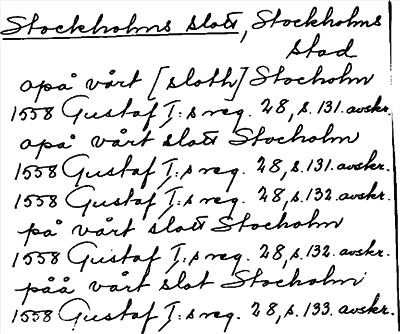 Stockholms slott, Stockholms
stad
opå vårt [sloth] Stocholm
1558 Gustaf I:s reg. 28, s. 131. avskr.
opå vårt slott Stocholm
1558 Gustaf I:s reg. 28, s. 131. avskr.
1558 Gustaf I:s reg. 28, s. 132. avskr.
på vårt slott Stocholm
1558 Gustaf I:s reg. 28, s. 132. avskr.
påå vårt slot Stocholm
1558 Gustaf I:s reg. 28, s. 133. avskr.